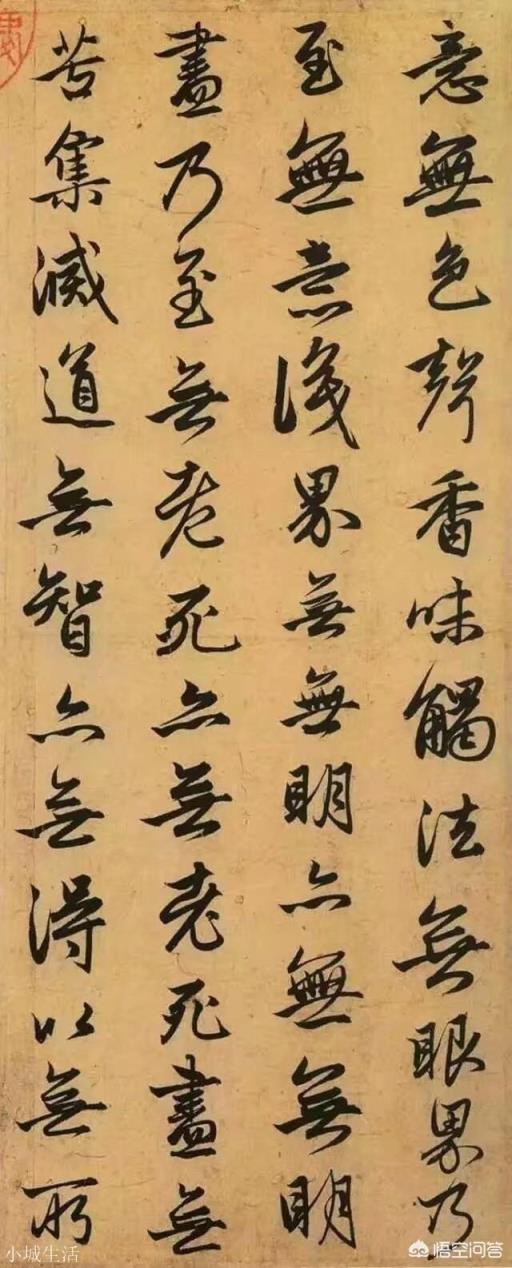 意無色聲香味觸法無眼界乃
至無意識界無無明亦無無明
盡乃至無老死亦無老死盡無
苦集滅道無智亦無得以無所
小城生活
悟空问答